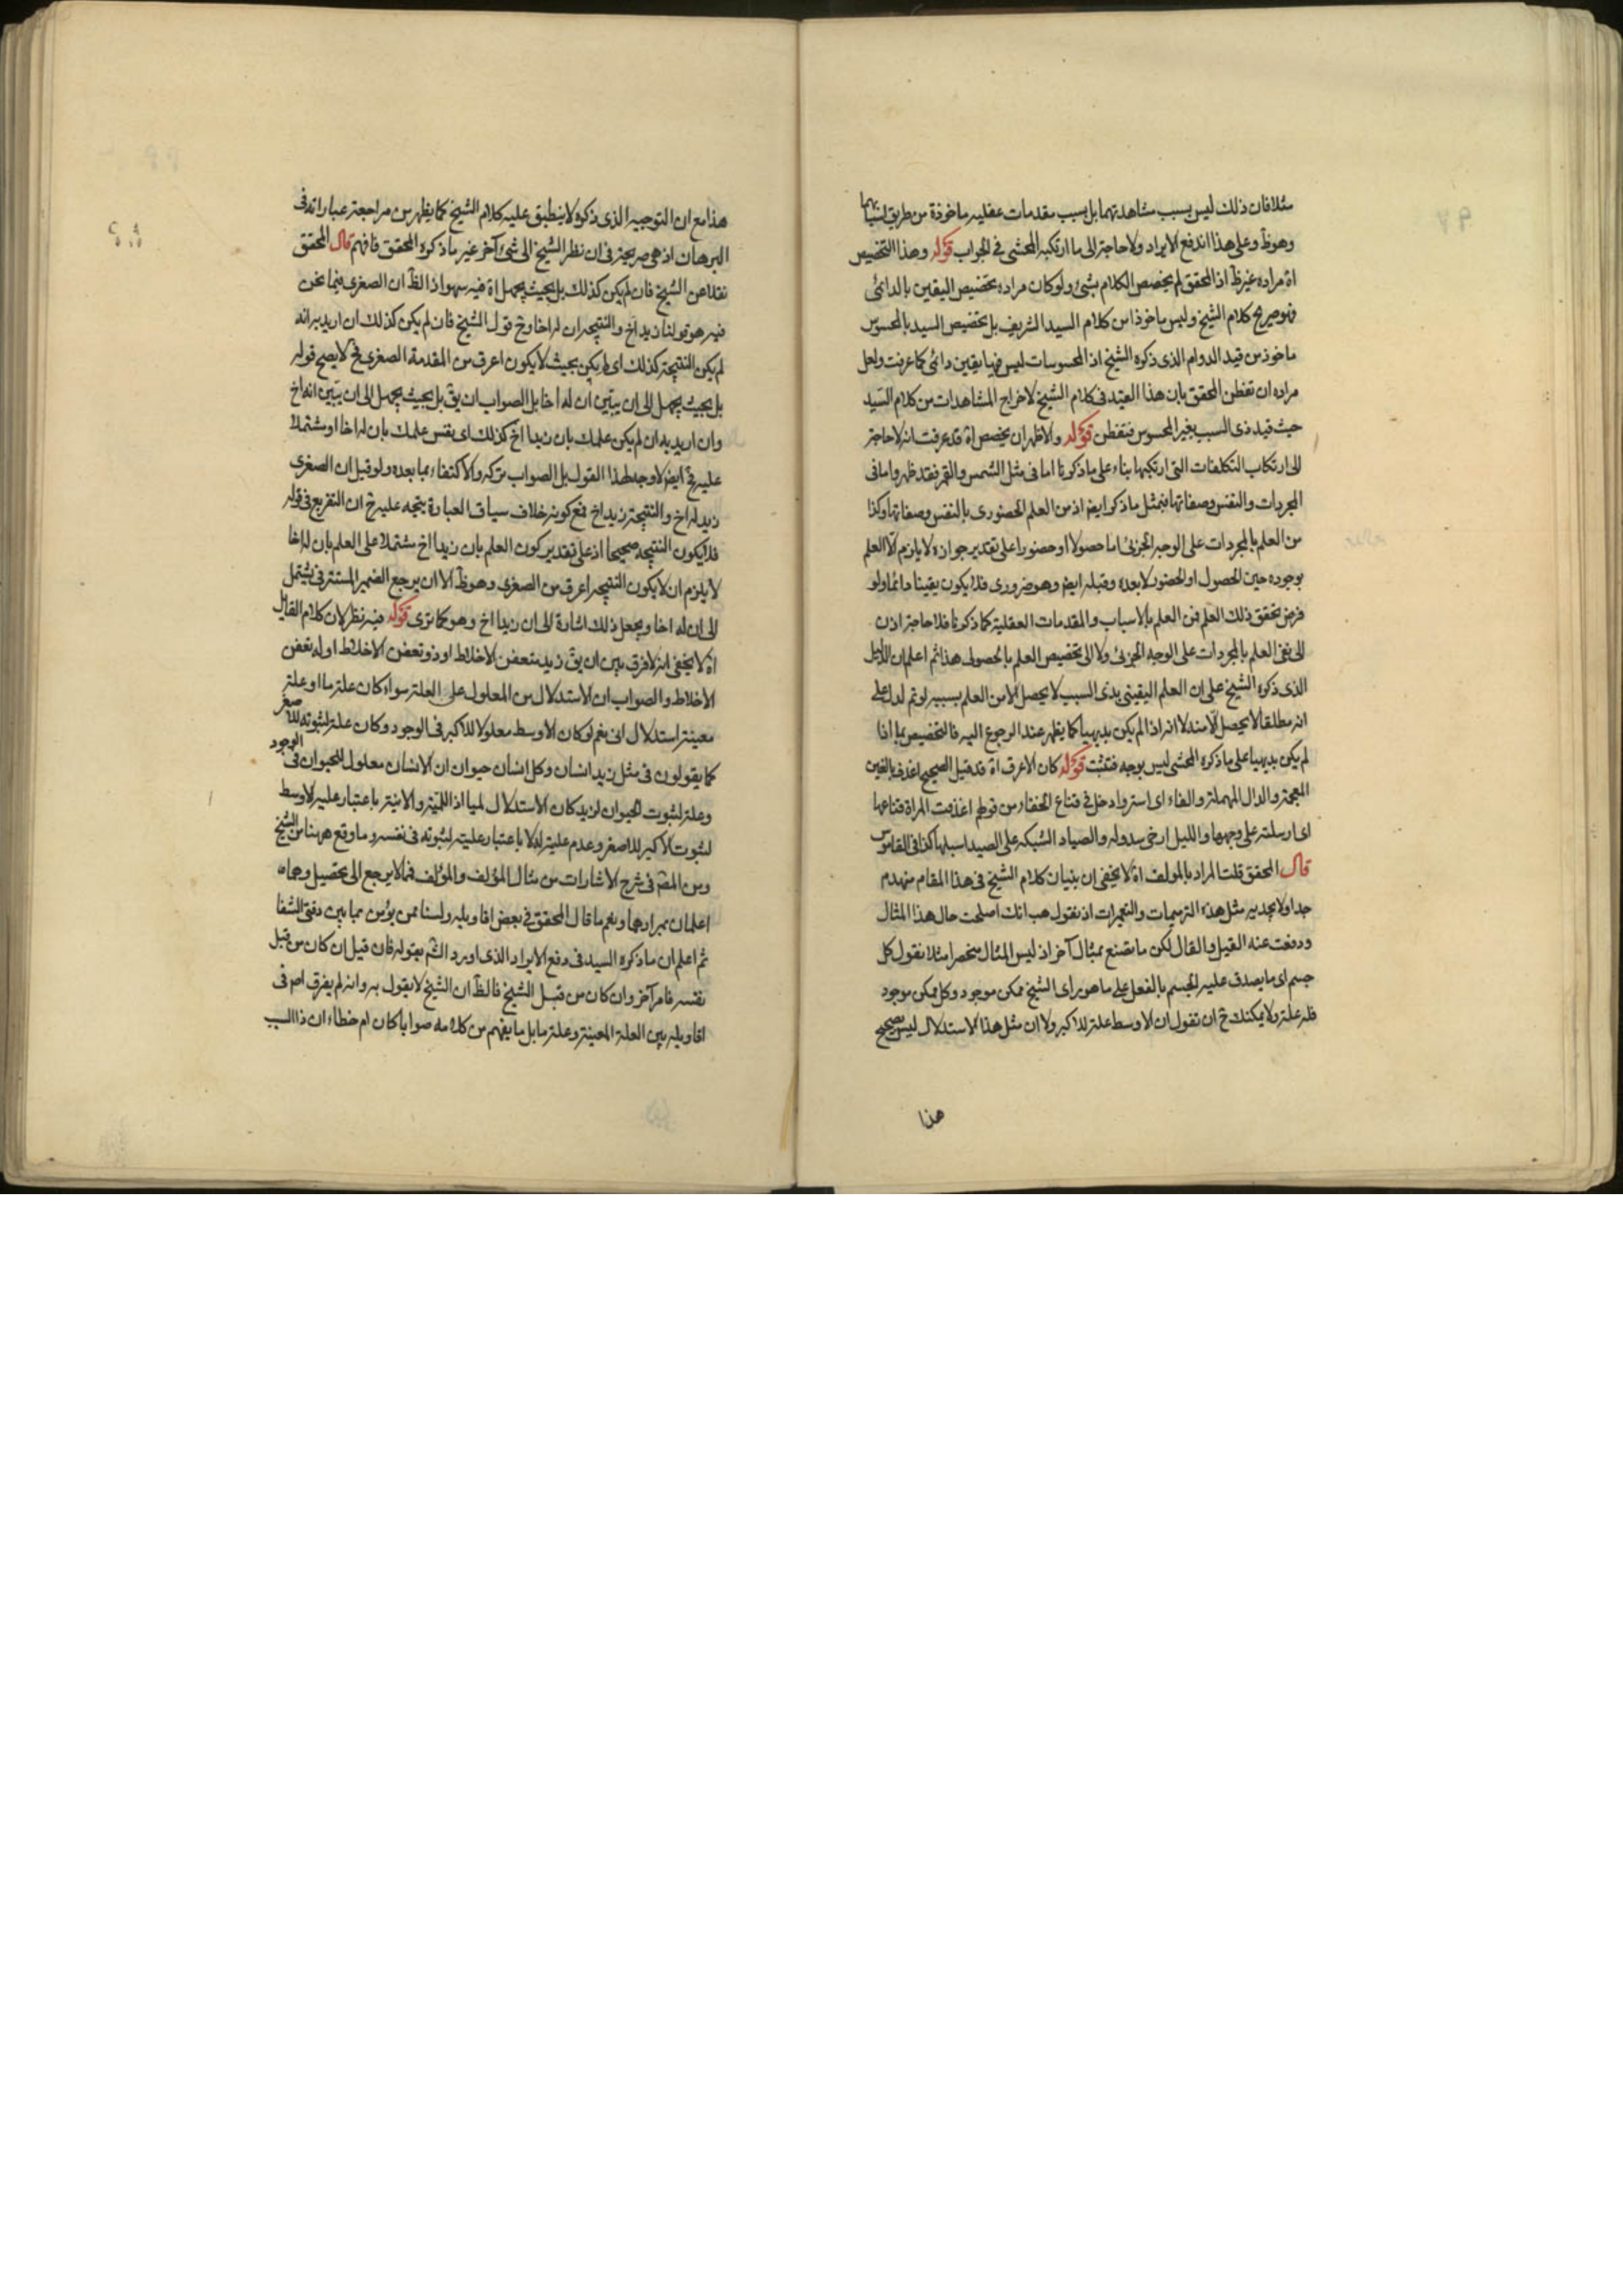 مثلا فان ذلك ليس بسبب مشاهدتهما بل بسبب مقدمات عقليه ماخوذة من طريق
وهو ظ وعلى هذا اندفع الايراد ولا حاجة الى ما ارتكبه المحشى فى الجواب قوله وهذا التخصيص
اه مراده غير ظ اذ المحقق لم يخصص الكلام بشئ ولو كان مراده تخصيص اليقين بالدائمى
فهو صريح كلام الشيخ وليس ماخوذا من كلام السيد الشريف بل تخصيص السيد بالمحسوس
ماخوذ من قيد الدوام الذى ذكره الشيخ اذ المحسوسات ليس فيها يقين دائمى كما عرفت ولعل
مراده ان تفطن المحقق بان هذا القيد فى كلام الشيخ لاخراج المشاهدات من كلام السيد
حيث قيد ذى السبب بغير المحسوس فتفطن قوله والاظهر ان يخصص اه قد عرفت انه لا حاجة
الى ارتكاب التكلفات التى ارتكبها بناء على ما ذكرنا اما فى مثل الشمس والقمر فقد ظهر واما فى
المجردات والنفس وصفاتها فبمثل ما ذكر ايض اذ من العلم الحضورى بالنفس وصفاتها وكذا
من العلم بالمجردات على الوجه الجزئى اما حصولا او حضورا على تقدير جوازه لا يلزم الا العلم
بوجوده حين الحصول او الحضور لا بعده وقبله ايض وهو ضرورى فلا يكون يقينا دائما ولو
فرض تحقق ذلك العلم فمن العلم بالاسباب والمقدمات العقلية كما ذكرنا فلا حاجة اذن
الى نفى العلم بالمجردات على الوجه الجزئى ولا الى تخصيص العلم بالحصول هذا ثم اعلم ان الدليل
الذى ذكره الشيخ على ان العلم اليقينى بذى السبب لا يحصل الا من العلم بسببه لو تم لدل على
انه مطلقا لا يحصل الا منه لا انه اذا لم يكن بديهيا كما يظهر عند الرجوع اليه فالتخصيص بما اذا
لم يكن بديهيا على ما ذكره المحشى ليس بوجه فتثبت قوله كان الاعرف اه قد قيل الصحيح اغدف بالغين
المعجمة والدال المهملة والفاء اى استر وادخل فى قناع الخفاء من قولهم اغدفت المراة قناعها
اى ارسلته على وجهها والليل ارخى سدوله والصياد الشبكه على الصيد اسبلها كذا فى القاموس
قال المحقق قلت المراد بالمولف اه لا يخفى ان بنيان كلام الشيخ فى هذا المقام منهدم
جدا ولا يجديه مثل هذه الترميمات والتعميرات اذ نقول هب انك اصلحت حال هذا المثال
ودفعت عنه القيل والقال لكن ما تصنع بمثال آخر اذ ليس المثال منحصرا مثلا نقول كل
جسم اى ما يصدق عليه الجسم بالفعل على ما هو راى الشيخ ممكن موجود وكل ممكن موجود
فله علة ولا يمكنك ح ان تقول ان الاوسط علة للاكبر ولا ان مثل هذا الاستدلال ليس بصحيح
هذا
هذا مع ان التوجيه الذى ذكره لا ينطبق عليه كلام الشيخ كما يظهر من مراجعة عباراته فى
البرهان اذ هى صريحة فى ان نظر الشيخ الى شئ آخر غير ما ذكره المحقق فافهم قال المحقق
نقلا عن الشيخ فان لم يكن كذلك بل بحيث يجهل اه فيه سهو اذ الظ ان الصغرى فيما نحن
فيه هو قولنا زيد اخ والنتيجة ان له اخا وح قول الشيخ فان لم يكن كذلك ان اريد به انه
لم يكن النتيجة كذلك اى لم يكن بحيث لا يكون اعرف من المقدمة الصغرى فح لا يصح قوله
بل بحيث يجهل الى ان يتبين ان له اخا بل الصواب ان يق بل بحيث يجهل الى ان يتبين انه اخ
وان اريد به ان لم يكن علمك بان زيدا اخ كذلك اى نفس علمك بان له اخا او مشتملا
عليه فح ايض لا وجه لهذا القول بل الصواب تركه والاكتفاء بما بعده ولو قيل ان الصغرى
زيد له اخ والنتيجة زيد اخ فمع كونه خلاف سياق العبارة يتجه عليه ح ان التفريع فى قوله
فلا يكون النتيجة صحيحا اذ على تقدير كون العلم بان زيدا اخ مشتملا على العلم بان له اخا
لا يلزم ان لا يكون النتيجة اعرف من الصغرى وهو ظ الا ان يرجع الضمير المستتر فى يشتمل
الى ان له اخا ويجعل ذلك اشارة الى ان زيدا اخ وهو كما ترى قوله فيه نظر لان كلام القائل
اه لا يخفى انه لا فرق بين ان يق زيد متعفن الاخلاط او ذو تعفن الاخلاط او له تعفن
الاخلاط والصواب ان الاستدلال من المعلول على العلة سواء كان علة ما او علة
معينة استدلال انى نعم لو كان الاوسط معلولا للاكبر فى الوجود وكان علة لثبوته للاصغر
كما يقولون فى مثل زيد انسان وكل انسان حيوان ان الانسان معلول للحيوان فى الوجود
وعلة لثبوت الحيوان لزيد كان الاستدلال لميا اذ اللمية والانية باعتبار علية الاوسط
لثبوت الاكبر للاصغر وعدم عليته له لا باعتبار عليته لثبوته فى نفسه وما وقع ههنا من الشيخ
ومن المصّ فى شرح الاشارات من مثال المؤلف والمؤلف فمما لا يرجع الى تحصيل وهما
اعلمان بمرادهما ونعم ما قال المحقق فى بعض اقاويله ولسنا ممن يؤمن بما بين دفتى الشفا
ثم اعلم ان ما ذكره السيد فى دفع الايراد الذى اورد الشّم بقوله فان قيل ان كان من قبل
نفسه فامر آخر وان كان من قبل الشيخ فالظ ان الشيخ لا يقول به وانه لم يفرق اصم فى
اقاويله بين العلة المعينة وعلة ما بل ما يفهم من كلامه صوابا كان ام خطاء ان ذا السبب